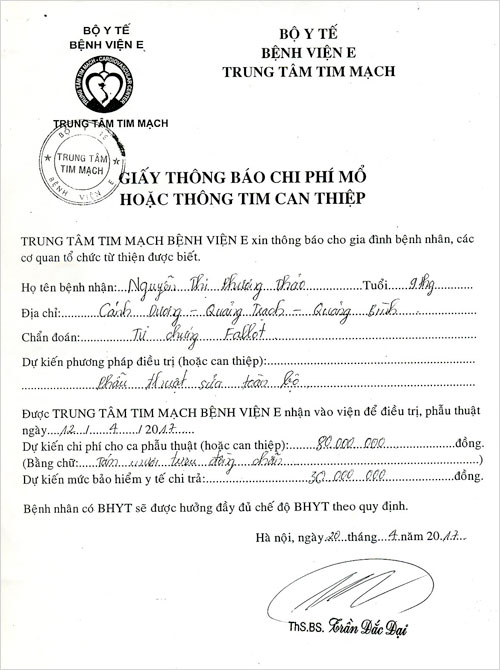 BỘ Y TẾ
BỆNH VIỆN E
TRUNG TÂM TIM MẠCH - CARDIOVASCULAR CENTER
TRUNG TÂM TIM MẠCH
BỘ Y TẾ
BỆNH VIỆN E
TRUNG TÂM TIM MẠCH
BỘ Y TẾ
TRUNG TÂM
TIM MẠCH
BỆNH VIỆN E
GIẤY THÔNG BÁO CHI PHÍ MỔ
HOẶC THÔNG TIM CAN THIỆP
TRUNG TÂM TIM MẠCH BỆNH VIỆN E xin thông báo cho gia đình bệnh nhân, các
cơ quan tổ chức từ thiện được biết.
Họ tên bệnh nhân: Nguyễn Thị Phương Thảo Tuổi 9 thg
Địa chỉ: Cảnh Dương - Quảng Trạch - Quảng Bình
Chẩn đoán: Tứ chứng Fallot
Dự kiến phương pháp điều trị (hoặc can thiệp):
phẫu thuật sửa toàn bộ
Được TRUNG TÂM TIM MẠCH BỆNH VIỆN E nhận vào viện để điều trị, phẫu thuật
ngày 12 / 4 / 2017
Dự kiến chi phí cho ca phẫu thuật (hoặc can thiệp): 80.000.000 đồng.
(Bằng chữ: Tám mươi triệu đồng chẵn)
Dự kiến mức bảo hiểm y tế chi trả: 30.000.000 đồng.
Bệnh nhân có BHYT sẽ được hưởng đầy đủ chế độ BHYT theo quy định.
Hà nội, ngày 20 tháng 4 năm 2017
ThS.BS. Trần Đắc Đại